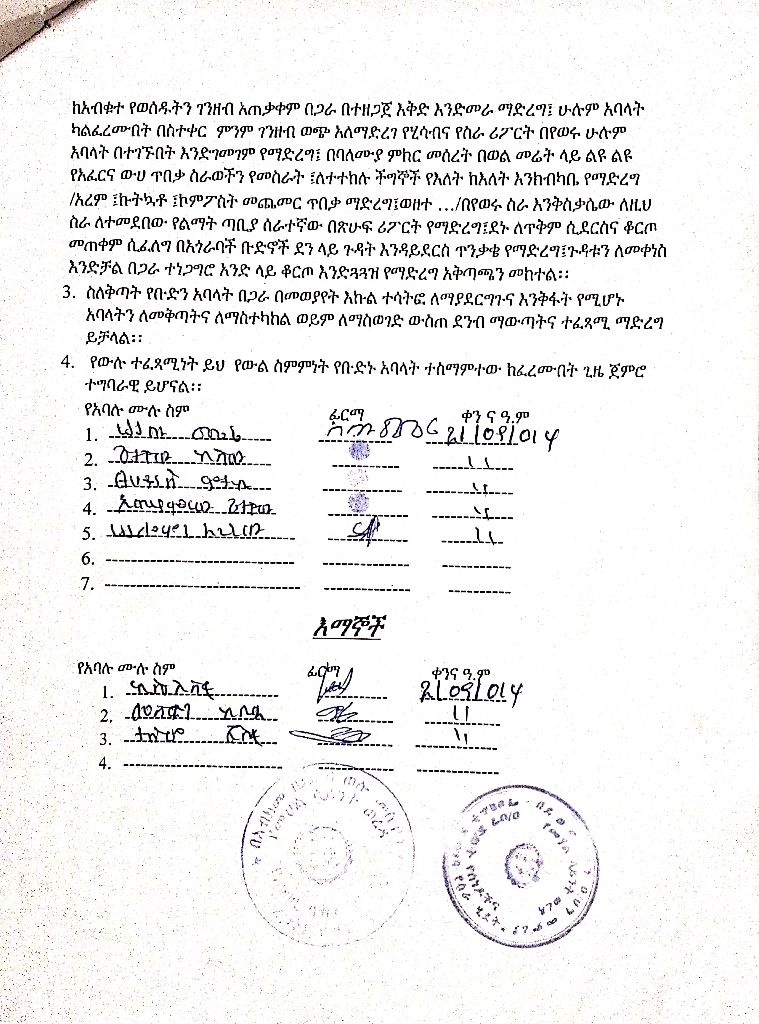 ከአብቁተ የወሰዱትን ገንዘብ አጠቃቀም በጋራ በተዘጋጀ እቅድ እንድመራ ማድረግ፤ ሁሉም አባላት
ካልፈረሙበት በስተቀር ምንም ገንዘብ ወጭ አለማድረግ የሂሳብና የስራ ሪፖርት በየወሩ ሁሉም
አባላት በተገኙበት እንድገመገም የማድረግ፤ በባለሙያ ምክር መሰረት በወል መሬት ላይ ልዩ ልዩ
የአፈርና ውሀ ጥበቃ ስራወችን የመስራት ፤ለተተከሉ ችግኞች የእለት ከእለት እንክብካቤ የማድረግ
/አረም ፤ኩትኳቶ ፤ኮምፖስት መጨመር ጥበቃ ማድረግ፤ወዘተ …/በየወሩ ስራ እንቅስቃሴው ለዚህ
ስራ ለተመደበው የልማት ጣቢያ ሰራተኛው በጽሁፍ ሪፖርት የማድረግ፤ደኑ ለጥቅም ሲደርስና ቆርጦ
መጠቀም ሲፈለግ በአጎራባች ቡድኖች ደን ላይ ጉዳት እንዳይደርስ ጥንቃቄ የማድረግ፤ጉዳቱን ለመቀነስ
እንድቻል በጋራ ተነጋግሮ አንድ ላይ ቆርጦ እንድጓጓዝ የማድረግ አቅጣጫን መከተል፡፡
3. ስለቅጣት የቡድን አባላት በጋራ በመወያየት እኩል ተሳትፎ ለማያደርግጉና እንቅፋት የሚሆኑ
አባላትን ለመቅጣትና ለማስተካከል ወይም ለማስወገድ ውስጠ ደንብ ማውጣትና ተፈጻሚ ማድረግ
ይቻላል፡፡
4. የውሉ ተፈጻሚነት ይህ የውል ስምምነት የቡድኑ አባላት ተስማምተው ከፈረሙበት ጊዜ ጀምሮ
ተግባራዊ ይሆናል፡፡
የአባሉ ሙሉ ስም ፊርማ ቀን ና ዓ.ም
1. 2/09/014
2. 11
3. 11
4. 11
5. 11
6.
7.
እማኞች
የአባሉ ሙሉ ስም ፊርማ ቀንና ዓ.ም
1. 2/09/014
2. 11
3. 11
4.